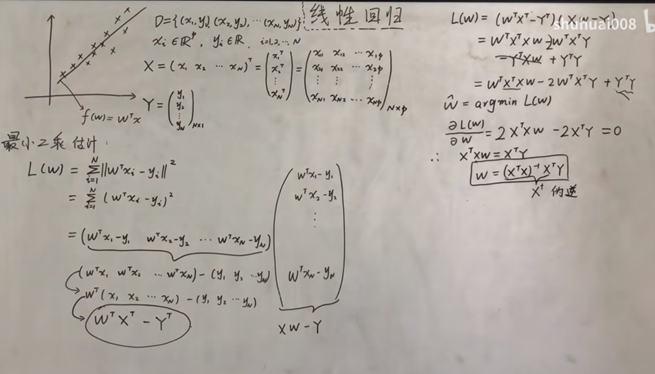 线性回归
D={(x₁,y₁),(x₂,y₂),⋯(x_N,y_N)}
xᵢ∈ℝᵖ, yᵢ∈ℝ, i=1,2,⋯N
X = (x₁ x₂ ⋯ x_N)ᵀ = (x₁ᵀ x₂ᵀ ⋮ x_Nᵀ) = (x₁₁ x₁₂ ⋯ x₁ₚ
x₂₁ x₂₂ ⋯ x₂ₚ
⋮ ⋮ ⋮
x_N1 x_N2 ⋯ x_Np)_N×p
Y = (y₁ y₂ ⋮ y_N)_N×1
f(w)=wᵀx
最小二乘估计:
L(w) = Σᵢ₌₁ᴺ ||wᵀxᵢ-yᵢ||²
= Σᵢ₌₁ᴺ (wᵀxᵢ-yᵢ)²
= (wᵀx₁-y₁ wᵀx₂-y₂ ⋯ wᵀx_N-y_N)
(wᵀx₁-y₁
wᵀx₂-y₂
⋮
wᵀx_N-y_N)
(wᵀx₁ wᵀx₂ ⋯ wᵀx_N)-(y₁ y₂ ⋯y_N)
wᵀ(x₁ x₂ ⋯ x_N)-(y₁ y₂ ⋯y_N)
WᵀXᵀ-Yᵀ
XW-Y
shuhuai008
L(w) = (wᵀxᵀ-Yᵀ)(Xw-Y)
= wᵀxᵀxw-2wᵀxᵀY
-YᵀXw + YᵀY
= wᵀxᵀxw-2wᵀxᵀY+YᵀY
ŵ = argmin L(w)
∂L(w)/∂w = 2XᵀXw-2XᵀY=0
∴ XᵀXw=XᵀY
w=(XᵀX)⁻¹XᵀY
X† 伪逆